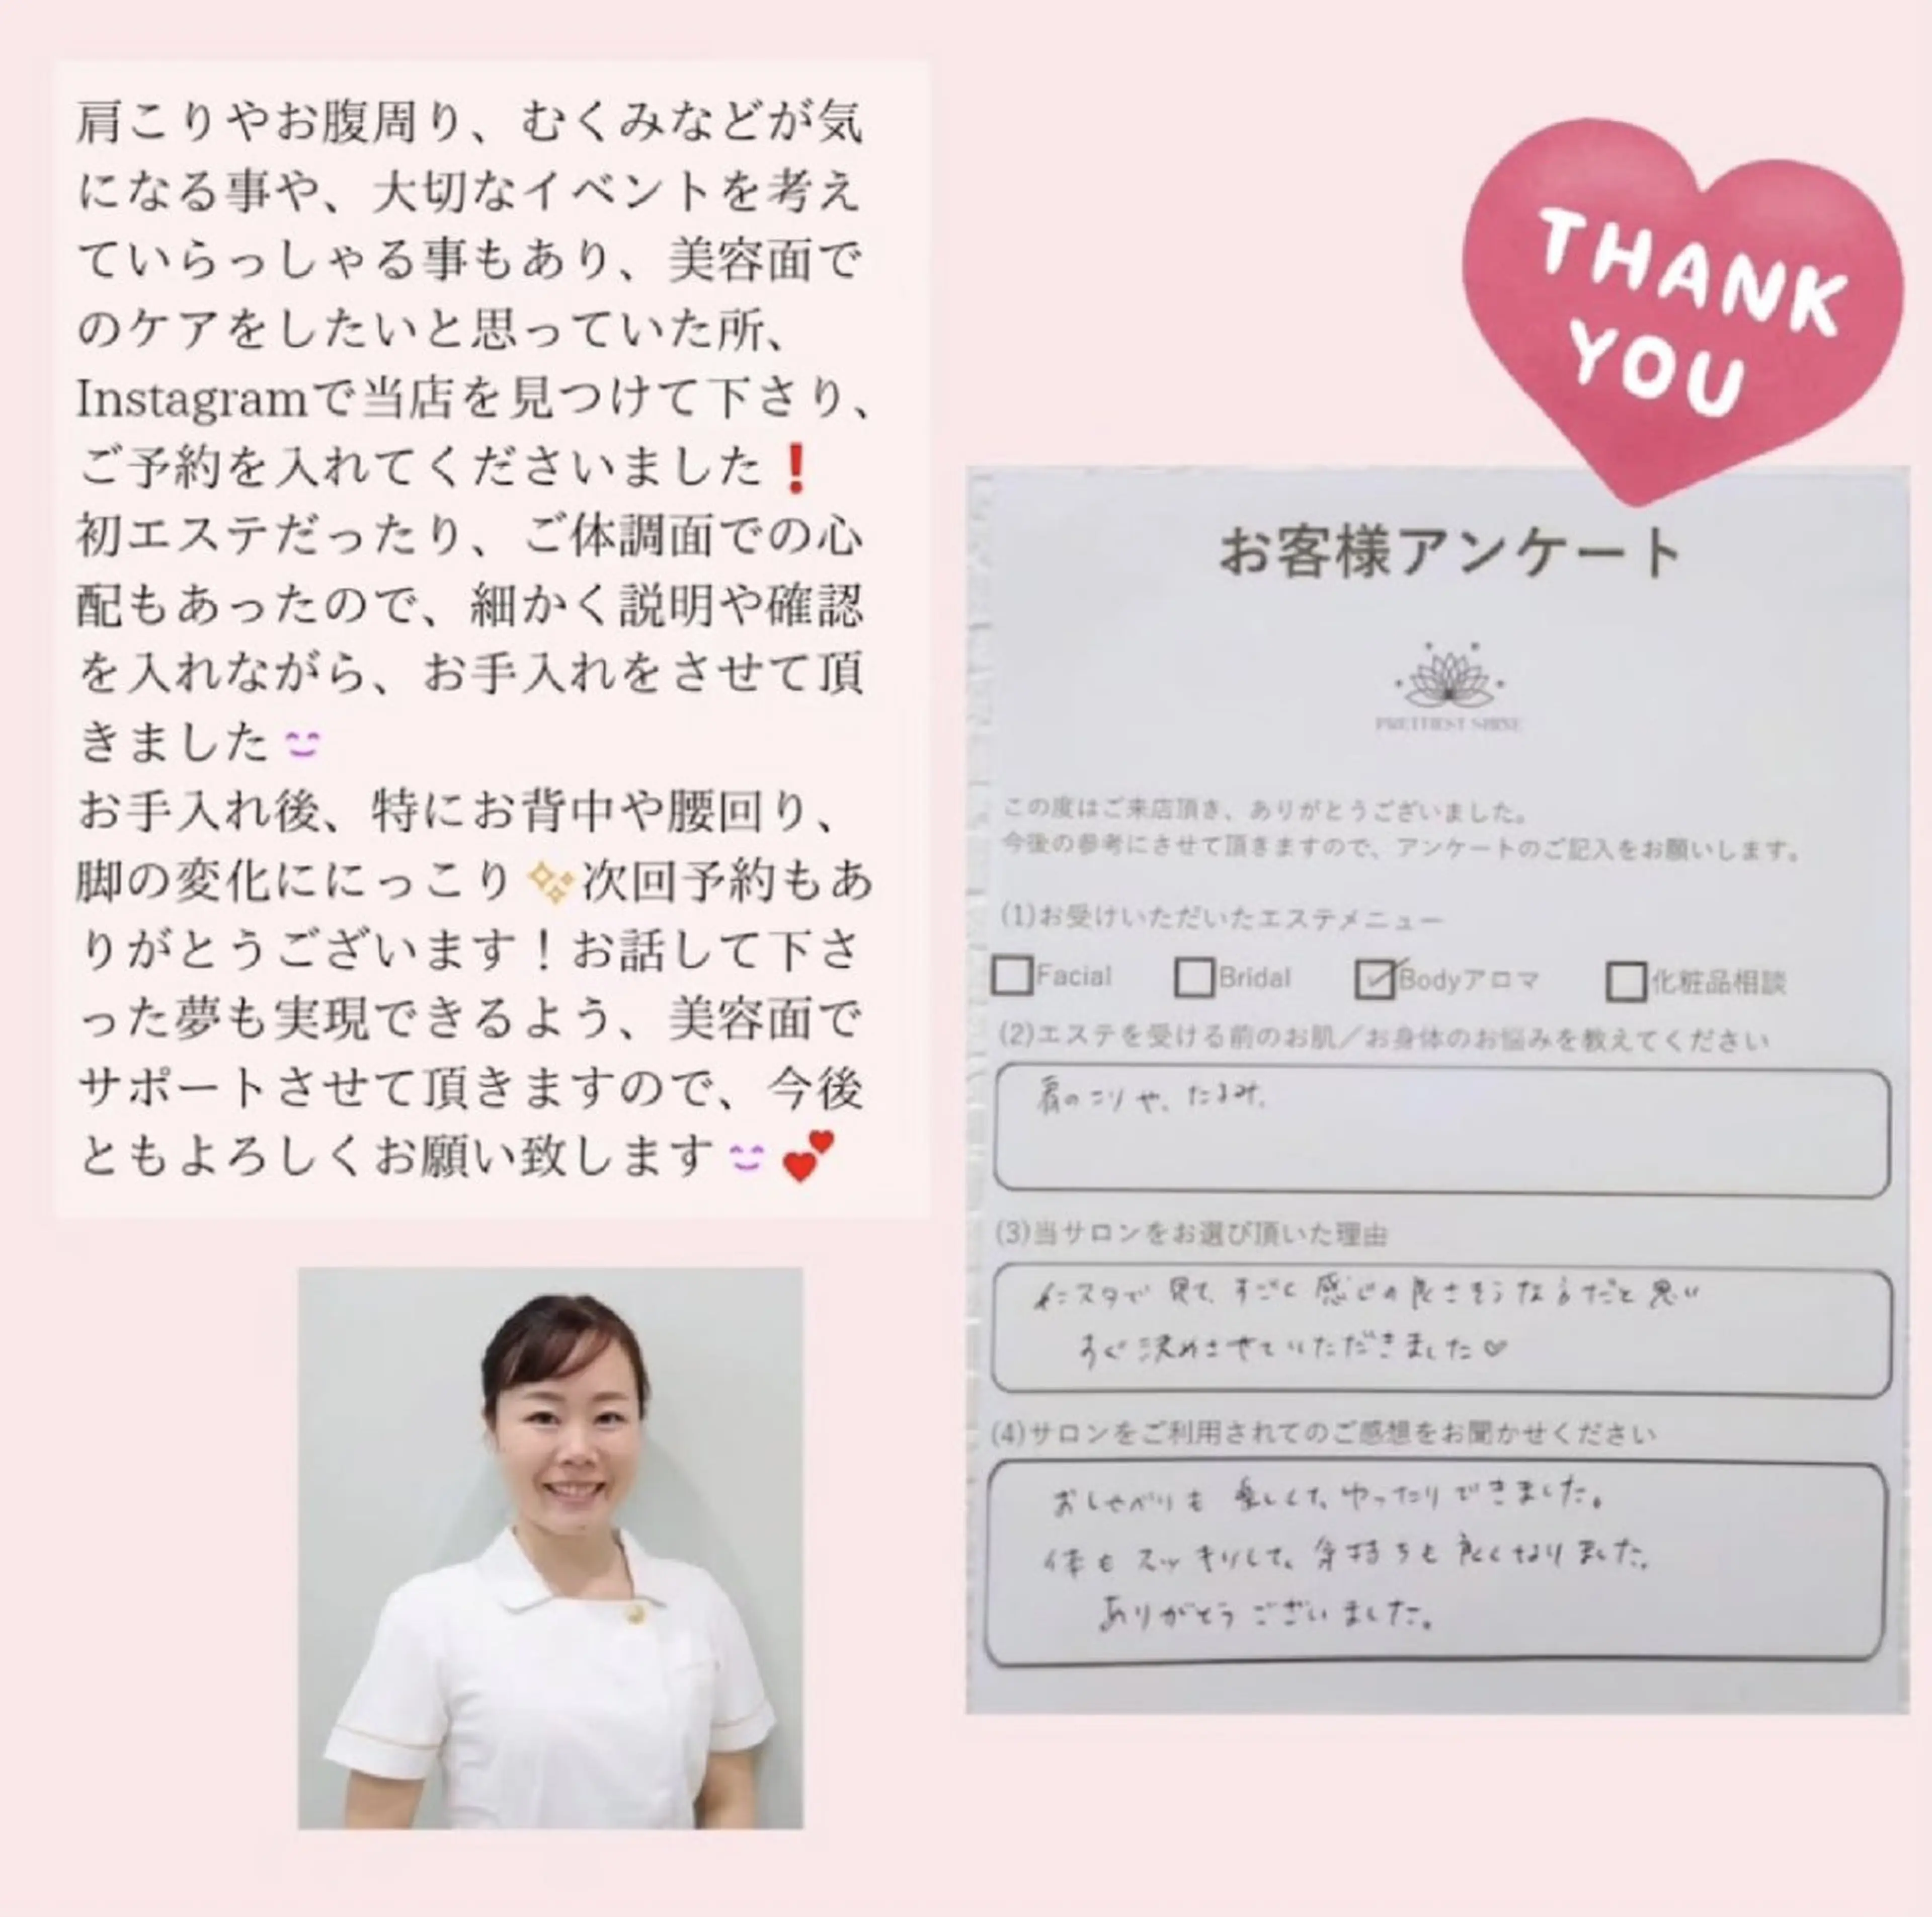 肩こりやお腹周り、むくみなどが気
になる事や、大切なイベントを考え
ていらっしゃる事もあり、美容面で
のケアをしたいと思っていた所、
Instagramで当店を見つけて下さり、
ご予約を入れてくださいました❗
初エステだったり、ご体調面での心
配もあったので、細かく説明や確認
を入れながら、お手入れをさせて頂
きました
お手入れ後、特にお背中や腰回り、
脚の変化ににっこり✨次回予約もあ
りがとうございます！お話して下さ
った夢も実現できるよう、美容面で
サポートさせて頂きますので、今後
ともよろしくお願い致します💕
THANK
YOU
お客様アンケート
PRETTIEST SHINE
この度はご来店頂き、ありがとうございました。
今後の参考にさせて頂きますので、アンケートのご記入をお願いします。
(1)お受けいただいたエステメニュー
Facial Bridal Bodyアロマ 化粧品相談
(2)エステを受ける前のお肌／お身体のお悩みを教えてください
肩のこりや、たるみ。
(3)当サロンをお選び頂いた理由
インスタで見て、すごく感じの良さそうな方だと思い
すぐ決めさせていただきました♡
(4)サロンをご利用されてのご感想をお聞かせください
おしゃべりも楽しくて、ゆったりできました。
体もスッキリして、気持ちも良くなりました。
ありがとうございました。